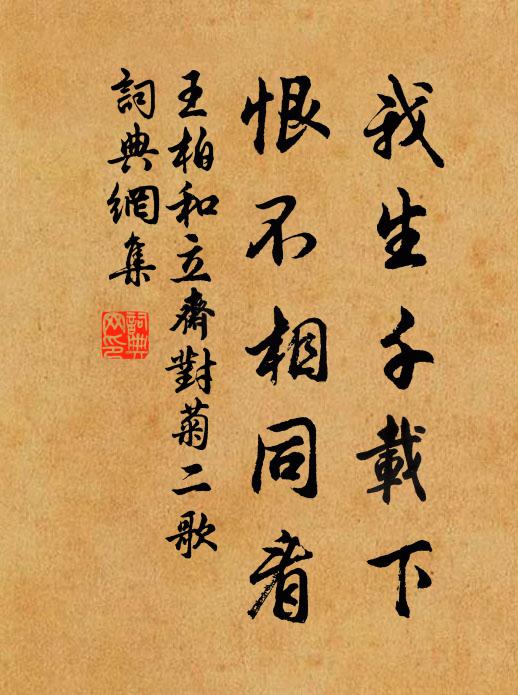 我生千載下
恨不相同看
王柏和立齋對菊二歌
詞典網集
詞典網印